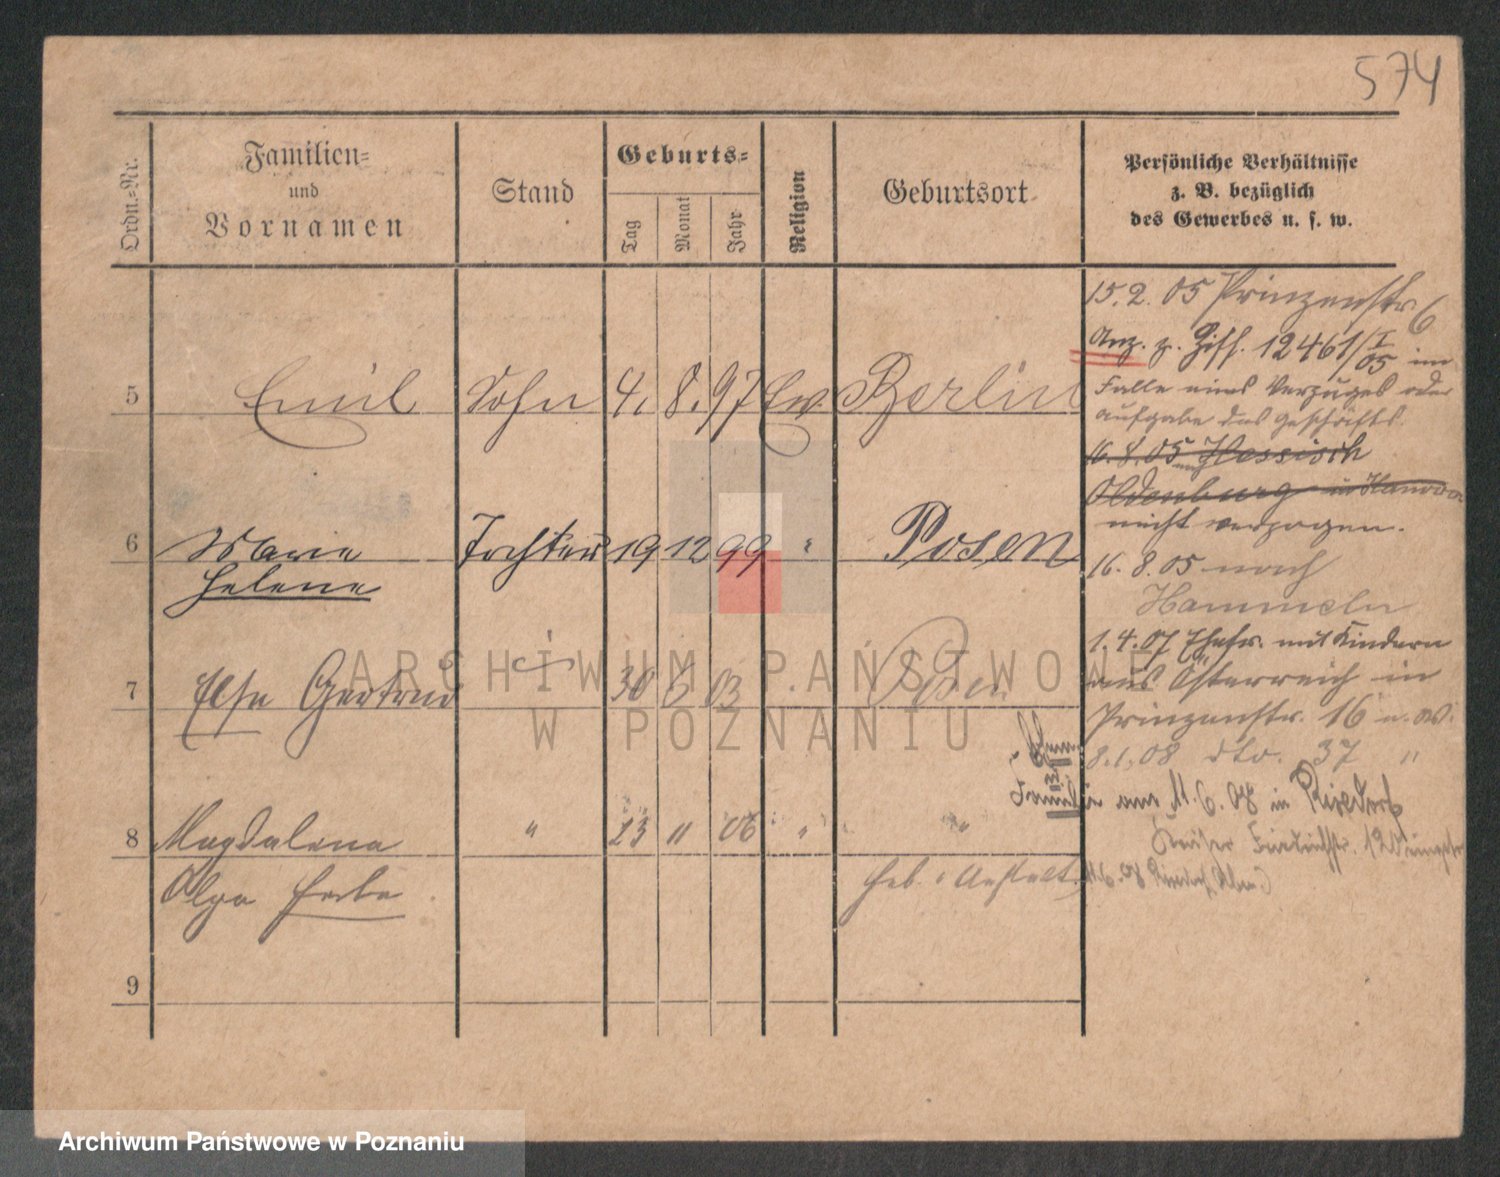 574
Ordn.-Nr.
Familien-
und
Vornamen
Stand
Geburts-
Tag
Monat
Jahr
Religion
Geburtsort
Persönliche Verhältnisse
z. B. bezüglich
des Gewerbes u. s. w.
5 Emil Sohn 4. 8. 97 Ev Berlin
6 Marie Tochter 19 12 99 " Posen
Helene
7 Else Gertrud " 30 6 03 Posen
8 Magdalena " 23 " 06 " "
Olga
Geb. Anstalt
9
15. 2. 05 Prinzenstr. 6
Anz. z. Ziff. 12461/I 05 im
Falle eines Verzuges oder
aufgabe des Geschäfts.
16. 8. 05 nach Hessisch
Oldenburg in Hannover
nicht verzogen.
16. 8. 05 nach
Hammeln
1. 4. 07 Ehefr. mit Kindern
aus Österreich in
Prinzenstr. 16
8. 1. 08 dto. 37 "
Familie am 11. 6. 08 in Rixdorf
Kaiser Friedrichstr.
11. 6. 08
ARCHIWUM PAŃSTWOWE
W POZNANIU
Archiwum Państwowe w Poznaniu